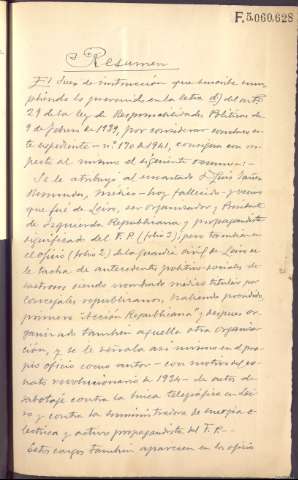 F.5.060.628
Resumen
El Juez de instrucción que suscribe cum-
pliendo lo prevenido en la letra d) del artº
29 de la ley de Responsabilidades Políticas de
9 de febrero de 1939, por considerar concluso es-
te expediente - nº 170 de 1941, consigna con res-
pecto al mismo el siguiente resumen:-
Se le atribuyó al encartado D. Luis
médico - hoy fallecido - y vecino
que fué de Leiro, ser organizador y Presidente
de Izquierda Republicana y propagandista
significado del F. P. (folio 3), pero también en
el oficio (folio 2) de la guardia civil de Leiro se
le tacha de antecedentes político-sociales de-
sastrosos siendo nombrado médico titular por
concejales republicanos, habiendo presidido
primero "Acción Republicana" y despues or-
ganizado también aquella otra organiza-
ción, y se le señala asi mismo en el pro-
pio oficio como autor - con motivo del co-
nato revolucionario de 1934 - de actos de
sabotaje contra la línea telegráfica en Lei-
ro y contra la suministradora de energía e-
léctrica y activo propagandista del F. P. -
Estos cargos también aparecen en los oficios